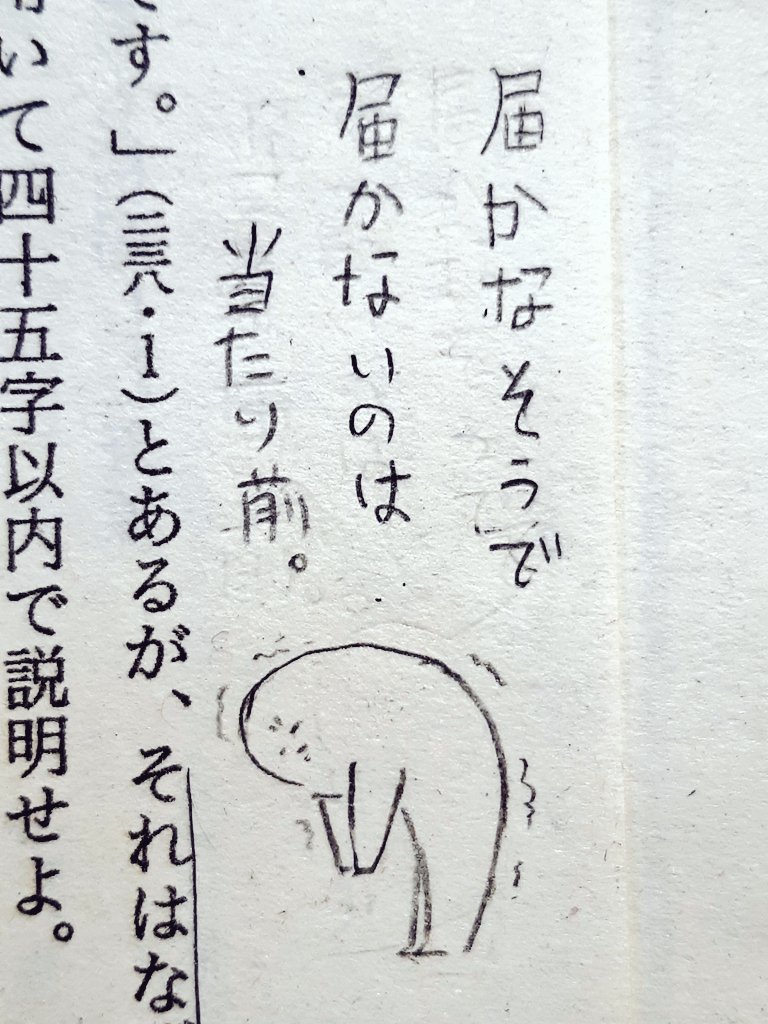 届かなそうで
届かないのは
当たり前。
す。」(三三八・1)とあるが、それはな
いて四十五字以内で説明せよ。